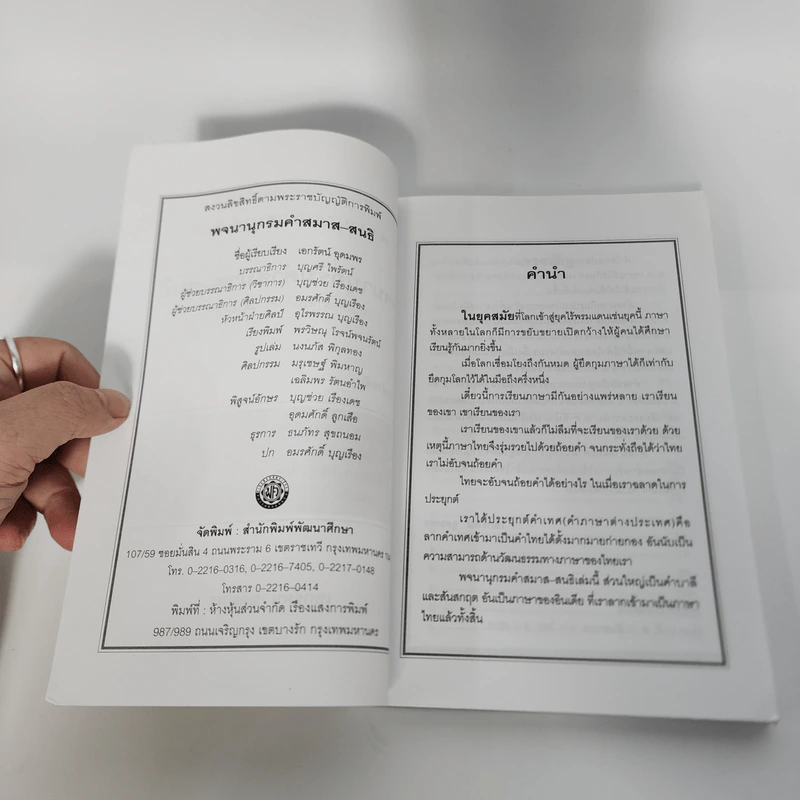 สงวนลิขสิทธิ์ตามพระราชบัญญัติการพิมพ์
พจนานุกรมคำสมาส–สนธิ
ชื่อผู้เรียบเรียง เอกรัตน์ อุดมพร
บรรณาธิการ บุญศรี ไพรัตน์
ผู้ช่วยบรรณาธิการ (วิชาการ) บุญช่วย เรืองเดช
ผู้ช่วยบรรณาธิการ (ศิลปกรรม) อมรศักดิ์ บุญเรือง
หัวหน้าฝ่ายศิลป์ อุไรพรรณ บุญเรือง
เรียงพิมพ์ พรวิษณุ โรจน์พจนรัตน์
รูปเล่ม นงนภัส พิกุลทอง
ศิลปกรรม มรุเชษฐ์ พิมหาญ
เฉลิมพร รัตนอำไพ
พิสูจน์อักษร บุญช่วย เรืองเดช
อุดมศักดิ์ ลูกเสือ
ธุรการ ธนภัทร สุขถนอม
ปก อมรศักดิ์ บุญเรือง
จัดพิมพ์ : สำนักพิมพ์พัฒนาศึกษา
107/59 ซอยมั่นสิน 4 ถนนพระราม 6 เขตราชเทวี กรุงเทพมหานคร
โทร. 0–2216–0316, 0–2216–7405, 0–2217–0148
โทรสาร 0–2216–0414
พิมพ์ที่ : ห้างหุ้นส่วนจำกัด เรืองแสงการพิมพ์
987/989 ถนนเจริญกรุง เขตบางรัก กรุงเทพมหานคร
คำนำ
ในยุคสมัยที่โลกเข้าสู่ยุคไร้พรมแดนเช่นยุคนี้ ภาษา
ทั้งหลายในโลกก็มีการขยับขยายเปิดกว้างให้ผู้คนได้ศึกษา
เรียนรู้กันมากยิ่งขึ้น
เมื่อโลกเชื่อมโยงถึงกันหมด ผู้ยึดกุมภาษาได้ก็เท่ากับ
ยึดกุมโลกไว้ได้ในมือถึงครึ่งหนึ่ง
เดี๋ยวนี้การเรียนภาษามีกันอย่างแพร่หลาย เราเรียน
ของเขา เขาเรียนของเรา
เราเรียนของเขาแล้วก็ไม่ลืมที่จะเรียนของเราด้วย ด้วย
เหตุนี้ภาษาไทยจึงรุ่มรวยไปด้วยถ้อยคำ จนกระทั่งถือได้ว่าไทย
เราไม่อับจนถ้อยคำ
ไทยจะอับจนถ้อยคำได้อย่างไร ในเมื่อเราฉลาดในการ
ประยุกต์
เราได้ประยุกต์คำเทศ(คำภาษาต่างประเทศ)คือ
ลากคำเทศเข้ามาเป็นคำไทยได้ตั้งมากมายก่ายกอง อันนับเป็น
ความสามารถด้านวัฒนธรรมทางภาษาของไทยเรา
พจนานุกรมคำสมาส–สนธิเล่มนี้ ส่วนใหญ่เป็นคำบาลี
และสันสกฤต อันเป็นภาษาของอินเดีย ที่เราลากเข้ามาเป็นภาษา
ไทยแล้วทั้งสิ้น